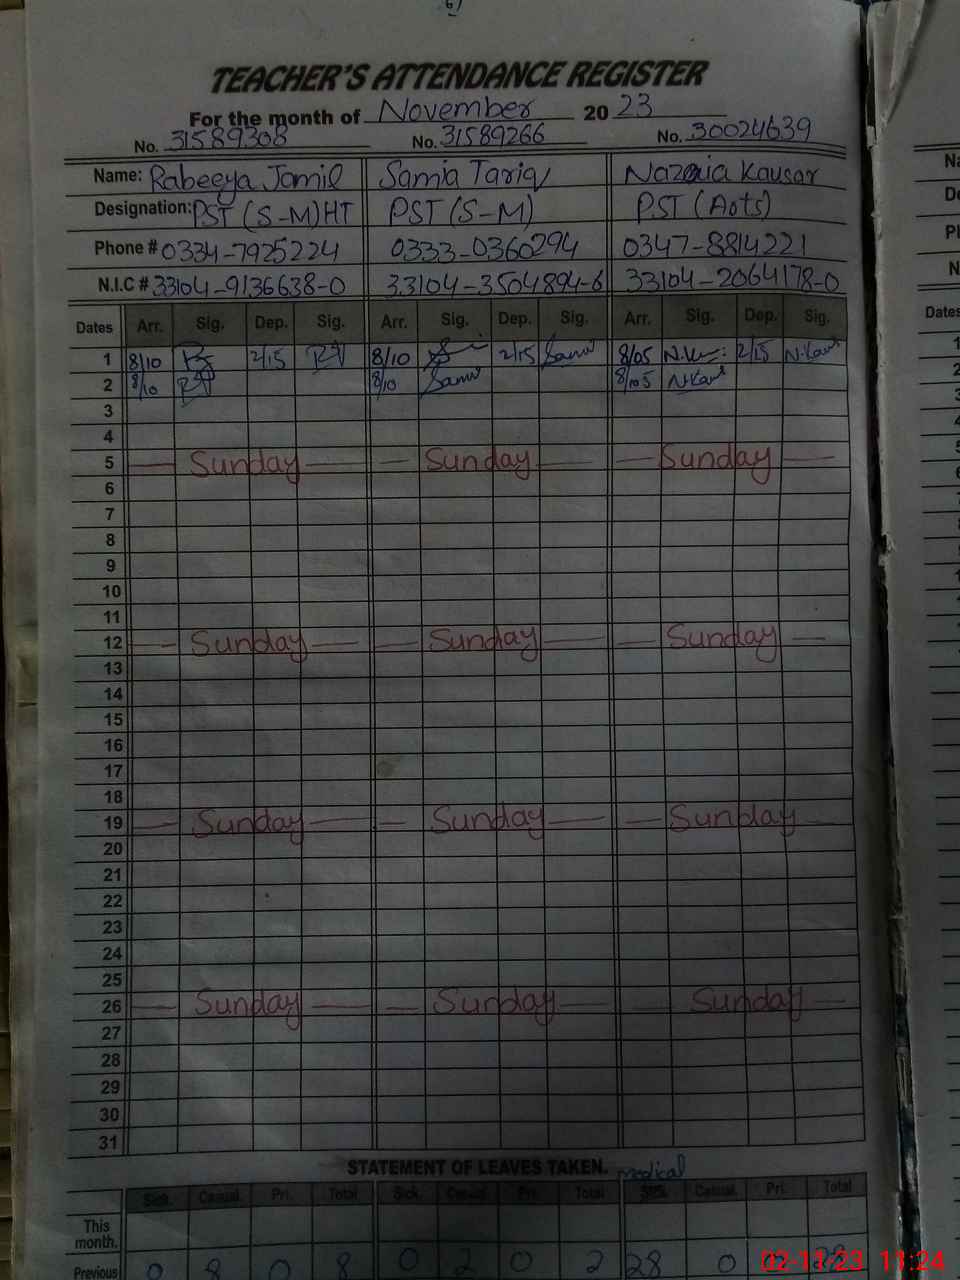 TEACHER'S ATTENDANCE REGISTER
For the month of November 2023
No. 31589308 No. 31589266 No. 30024639
Name: Rabeeya Jamil Samia Tariq Nazaia Kausar
Designation: PST (S-M) HT PST (S-M) PST (Aots)
Phone # 0334-7925224 0333-0360294 0347-8814221
N.I.C # 33104-9136638-0 33104-3504894-6 33104-2064178-0
Dates Arr. Sig. Dep. Sig. Arr. Sig. Dep. Sig. Arr. Sig. Dep. Sig.
1 8/10 2/15 8/10 2/15 8/05 2/15
2 8/10 8/10 8/05
3
4
5 Sunday Sunday Sunday
6
7
8
9
10
11
12 Sunday Sunday Sunday
13
14
15
16
17
18
19 Sunday Sunday Sunday
20
21
22
23
24
25
26 Sunday Sunday Sunday
27
28
29
30
31
STATEMENT OF LEAVES TAKEN. medical
Sick. Casual. Pri. Total Sick. Casual Pri. Total Sick. Casual. Pri. Total
This month.
Previous 0 8 0 8 0 2 0 2 28 0
02-11-23 11:24